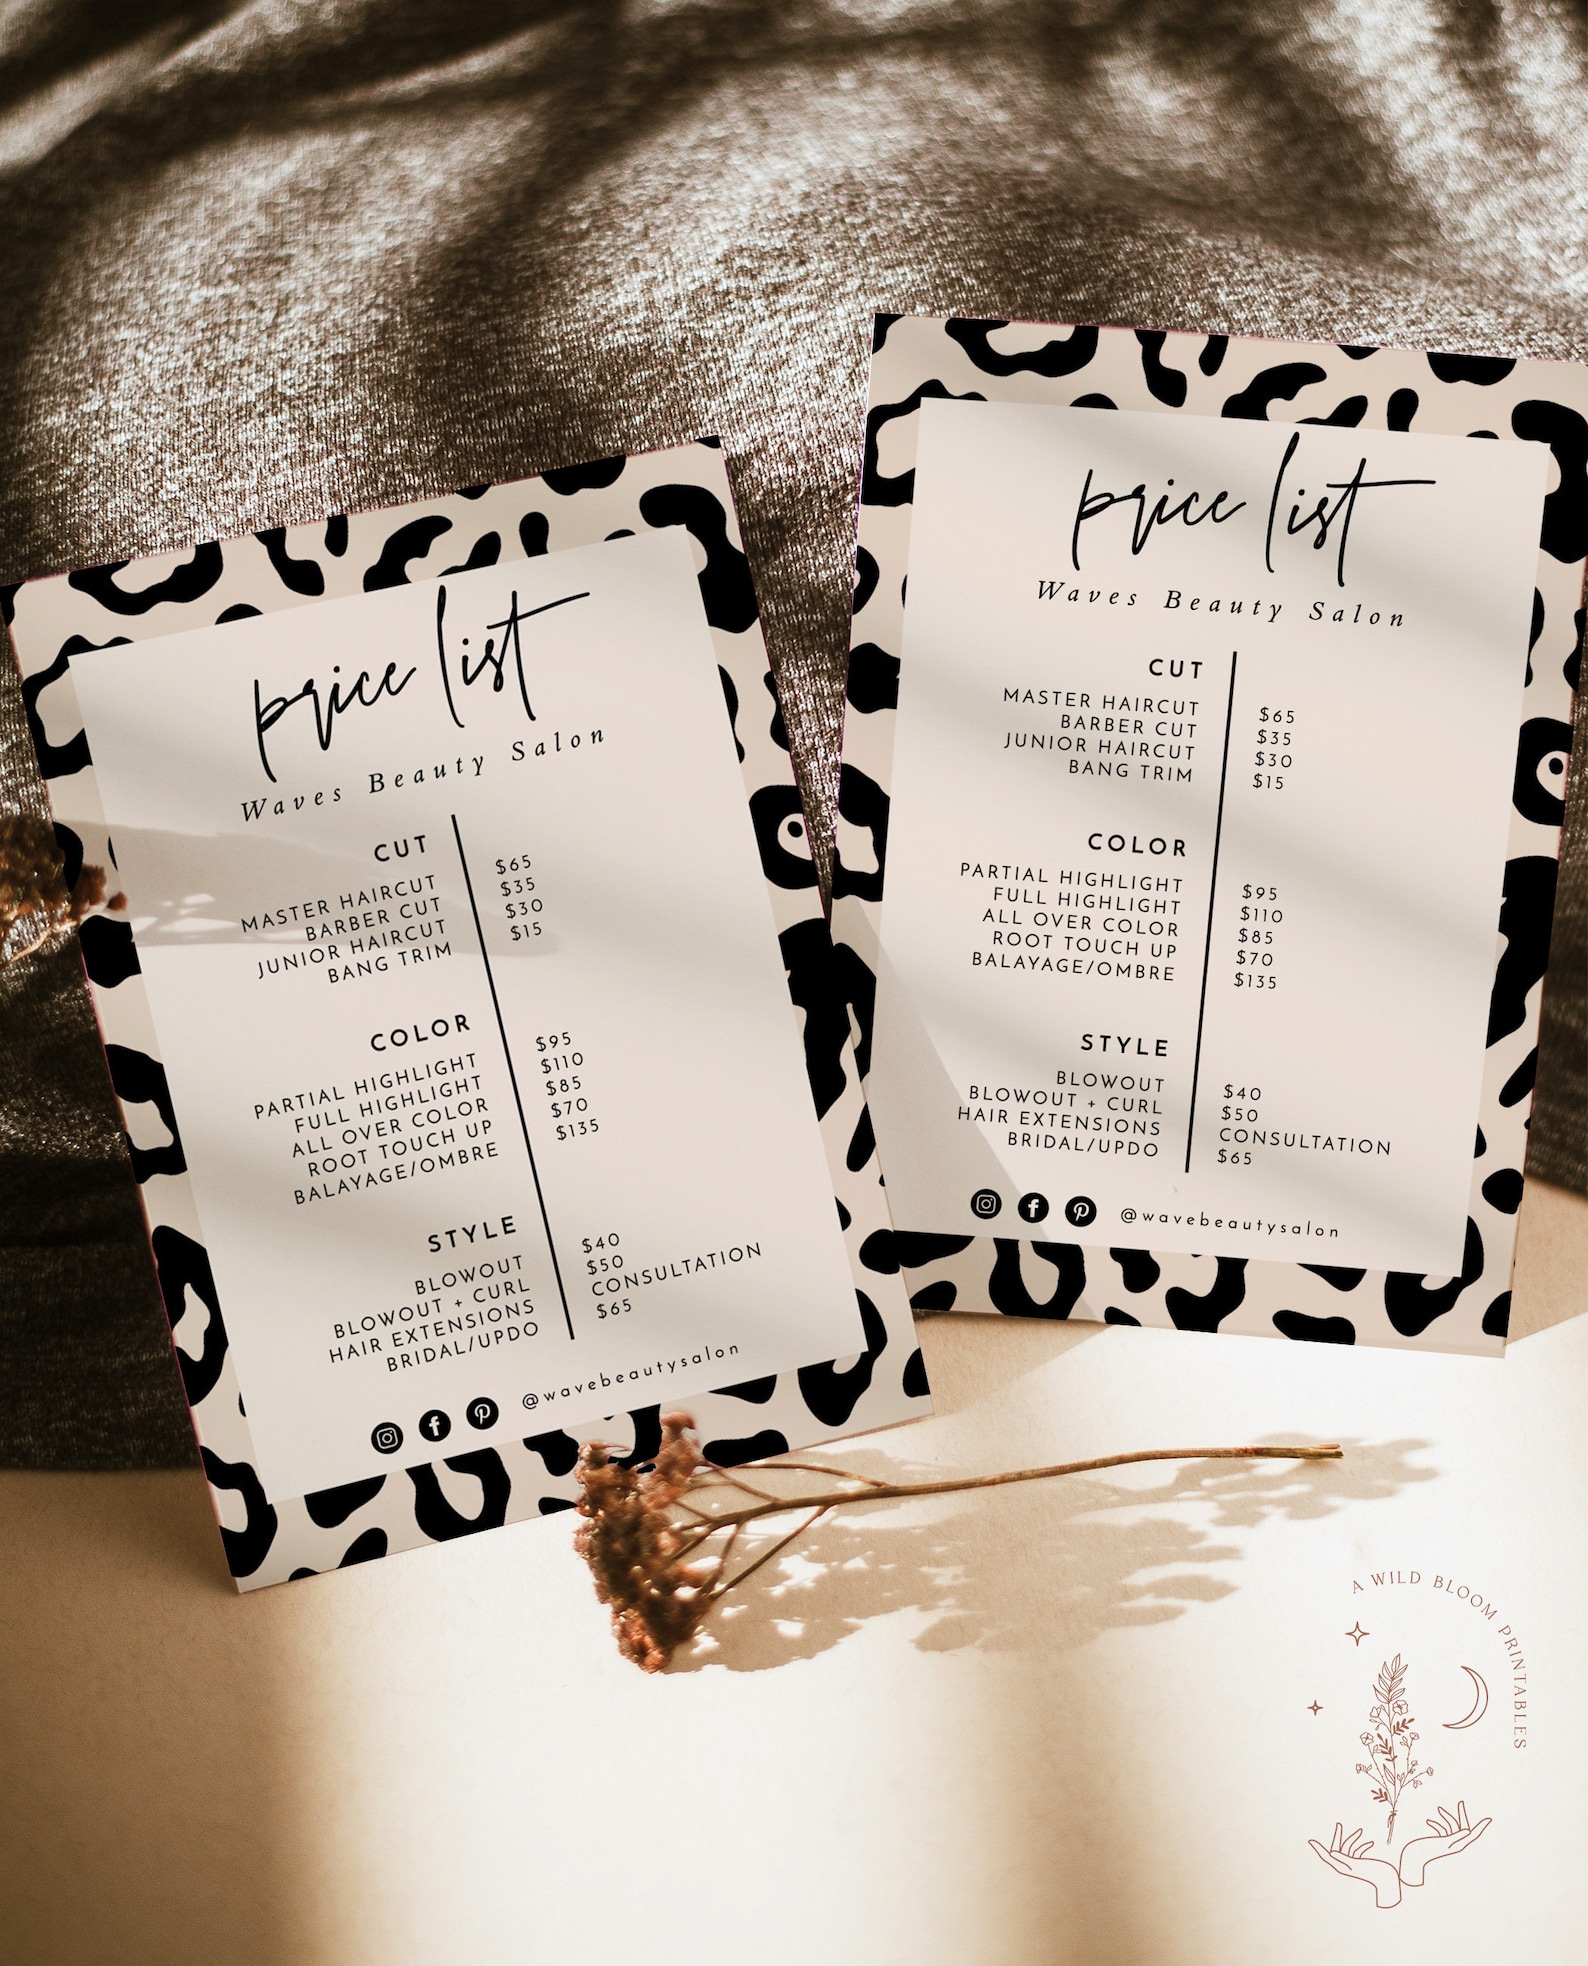 price list
Waves Beauty Salon
CUT
MASTER HAIRCUT $65
BARBER CUT $35
JUNIOR HAIRCUT $30
BANG TRIM $15
COLOR
PARTIAL HIGHLIGHT $95
FULL HIGHLIGHT $110
ALL OVER COLOR $85
ROOT TOUCH UP $70
BALAYAGE/OMBRE $135
STYLE
BLOWOUT $40
BLOWOUT + CURL $50
HAIR EXTENSIONS CONSULTATION
BRIDAL/UPDO $65
@wavebeautysalon
price list
Waves Beauty Salon
CUT
MASTER HAIRCUT $65
BARBER CUT $35
JUNIOR HAIRCUT $30
BANG TRIM $15
COLOR
PARTIAL HIGHLIGHT $95
FULL HIGHLIGHT $110
ALL OVER COLOR $85
ROOT TOUCH UP $70
BALAYAGE/OMBRE $135
STYLE
BLOWOUT $40
BLOWOUT + CURL $50
HAIR EXTENSIONS CONSULTATION
BRIDAL/UPDO $65
@wavebeautysalon
A WILD BLOOM PRINTABLES